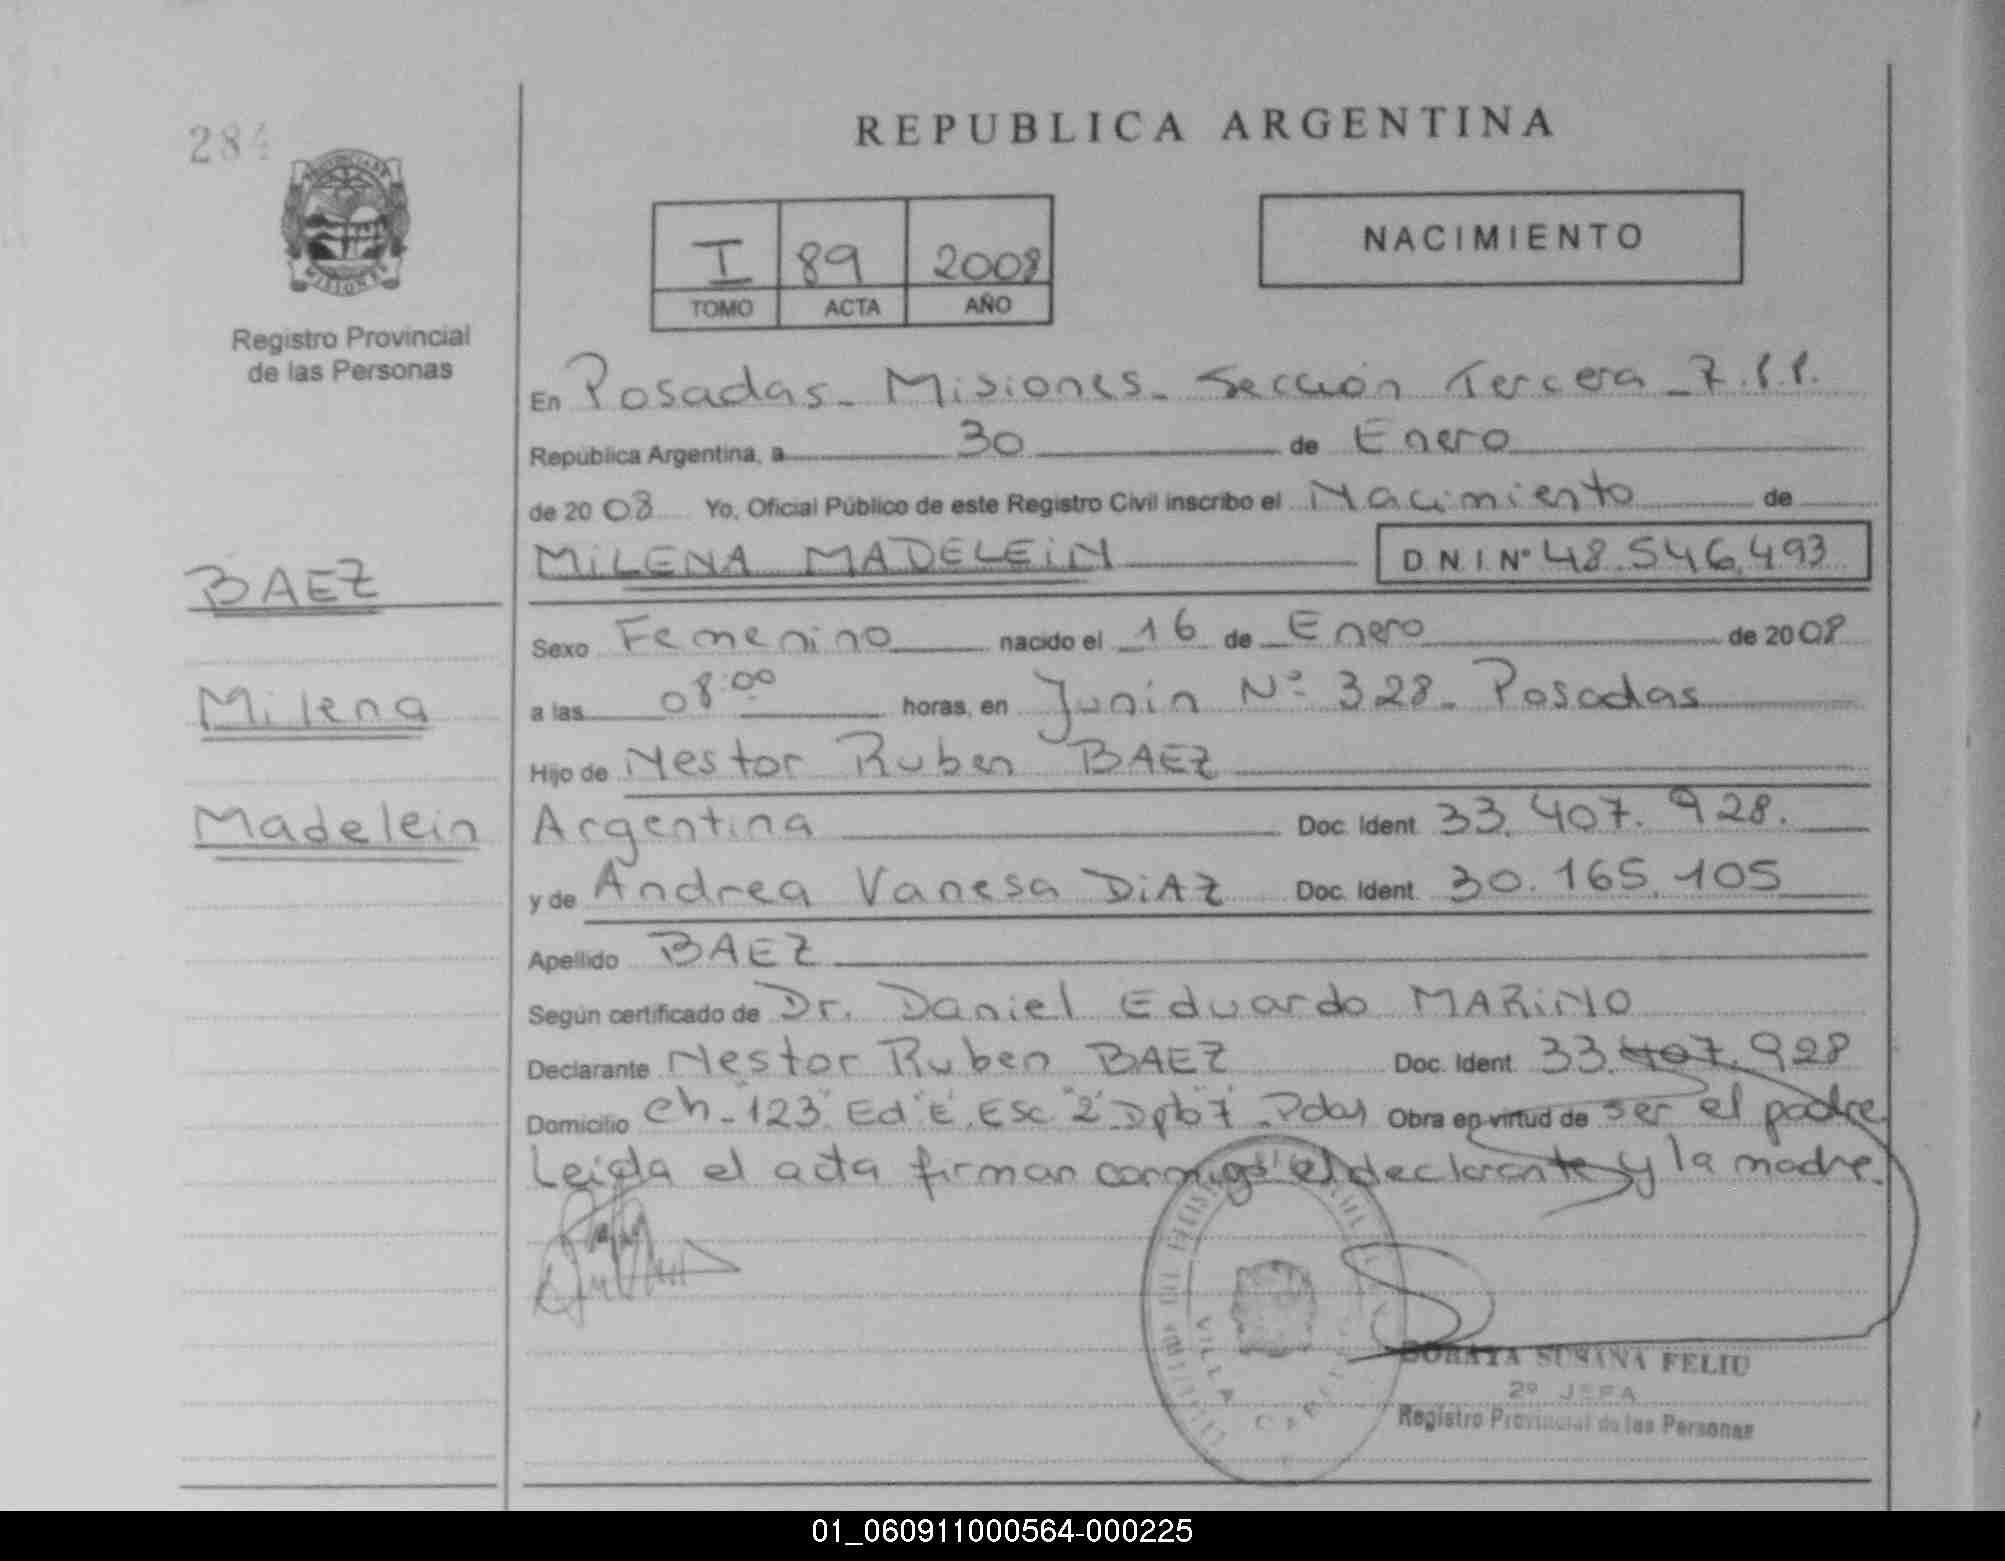 284
REPUBLICA ARGENTINA
I 89 2008
TOMO ACTA AÑO
NACIMIENTO
Registro Provincial
de las Personas
En Posadas - Misiones - Sección Tercera - 7.
República Argentina, a 30 de Enero
de 2008 Yo, Oficial Público de este Registro Civil inscribo el Nacimiento de
MILENA MADELEIN D.N.I.N° 48.546.493
BAEZ
Milena
Madelein
Sexo Femenino nacido el 16 de Enero de 2008
a las 08:00 horas, en Junin N° 328 - Posadas
Hijo de Nestor Ruben BAEZ
Argentina Doc. Ident. 33.407.928.
y de Andrea Vanesa DiAZ Doc. Ident. 30.165.105
Apellido BAEZ
Según certificado de Dr. Daniel Eduardo MARIÑO
Declarante Nestor Ruben BAEZ Doc. Ident. 33.407.928
Domicilio Ch - 123 Ed "E" Esc "2" Dpto 7 - Pdas Obra en virtud de ser el padre
Leida el acta firman conmigo el declarante y la madre.
VILLA
SORAYA SUSANA FELIU
2º JEFA
Registro Provincial de las Personas
01_060911000564-000225